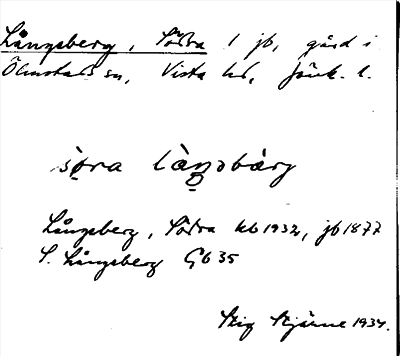 Långsberg, Södra 1 jb, gård i
Ölmstads sn, Vista hd, Jönk. l.
sö̀ra làŋsbàrg
Långsberg, Södra hb 1932, jb 1877
S. Långsberg Gb 35
Stig Stjärne 1934.